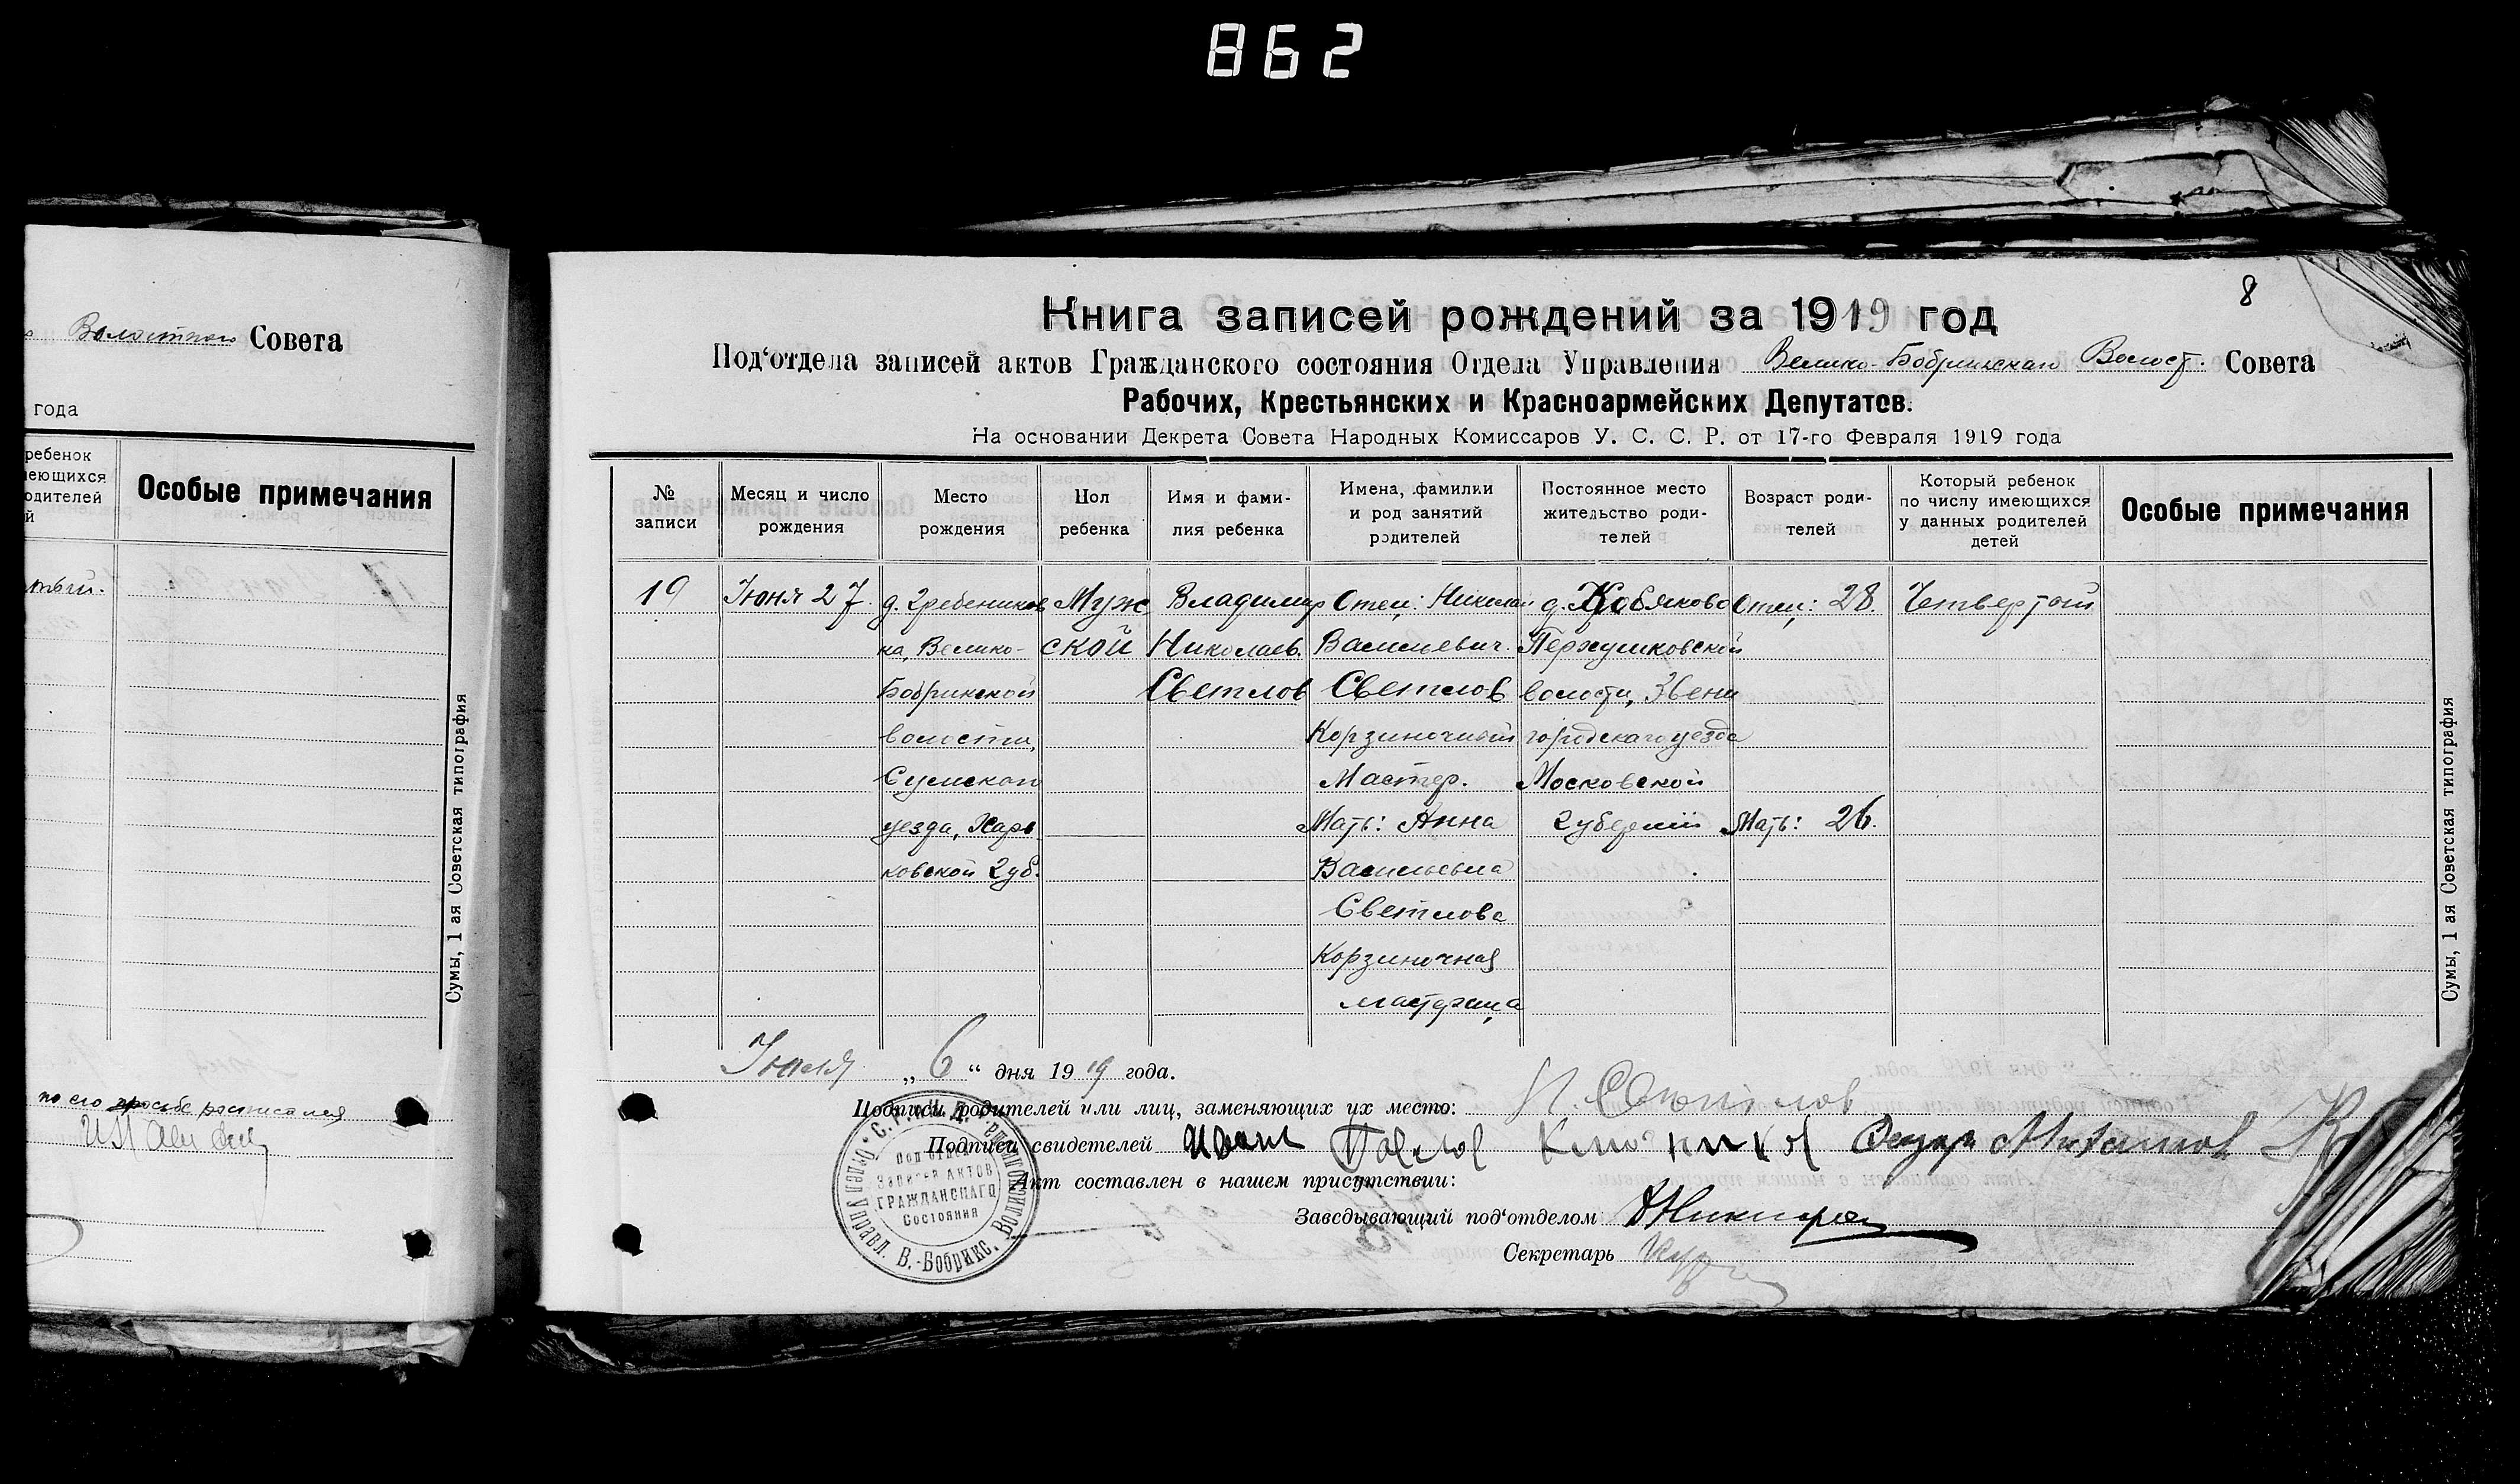 862
Волостного Совета
года
ребенок
имеющихся
родителей
й
Особые примечания
Сумы, 1 ая Советская типография
по его просьбе расписался
8
Книга записей рождений за 1919 год
Под‘отдела записей актов Гражданского состояния Отдела Управления Велико-Бобрикскаго Волост. Совета
Рабочих, Крестьянских и Красноармейских Депутатов.
На основании Декрета Совета Народных Комиссаров У. С. С. Р. от 17-го Февраля 1919 года
№ записи
Месяц и число рождения
Место рождения
Пол ребенка
Имя и фами-
лия ребенка
Имена, фамилии
и род занятий
родителей
Постоянное место
жительство роди-
телей
Возраст роди-
телей
Который ребенок
по числу имеющихся
у данных родителей
детей
Особые примечания
19
Июня 27.
д. Гребеников
ка, Велико-
Бобрикской
волости,
Сумскаго
уезда, Харь
ковской Губ.
Муж
ской
Владимир
Николаев.
Светлов
Отец: Николай
Васильевич.
Светлов
Корзиночный
Мастер.
Мать: Анна
Васильевна
Светлова
Корзиночная
мастерица
д. Кобяково
Перхушковской
волости, Звени
городскаго уезда
Московской
Губернии
Отец: 28.
Мать: 26.
Четвертый
Сумы, 1 ая Советская типография
Июля „6“ дня 1919 года.
Подписи родителей или лиц, заменяющих их место: Н. Светлов
Подписи свидетелей Иван Павлов
Акт составлен в нашем присутствии:
Заведывающий под‘отделом
Секретарь
Отдел Управл. В.-Бобрикс. Волостного
Под‘отдел
Записей Актов
Гражданскаго
Состояния